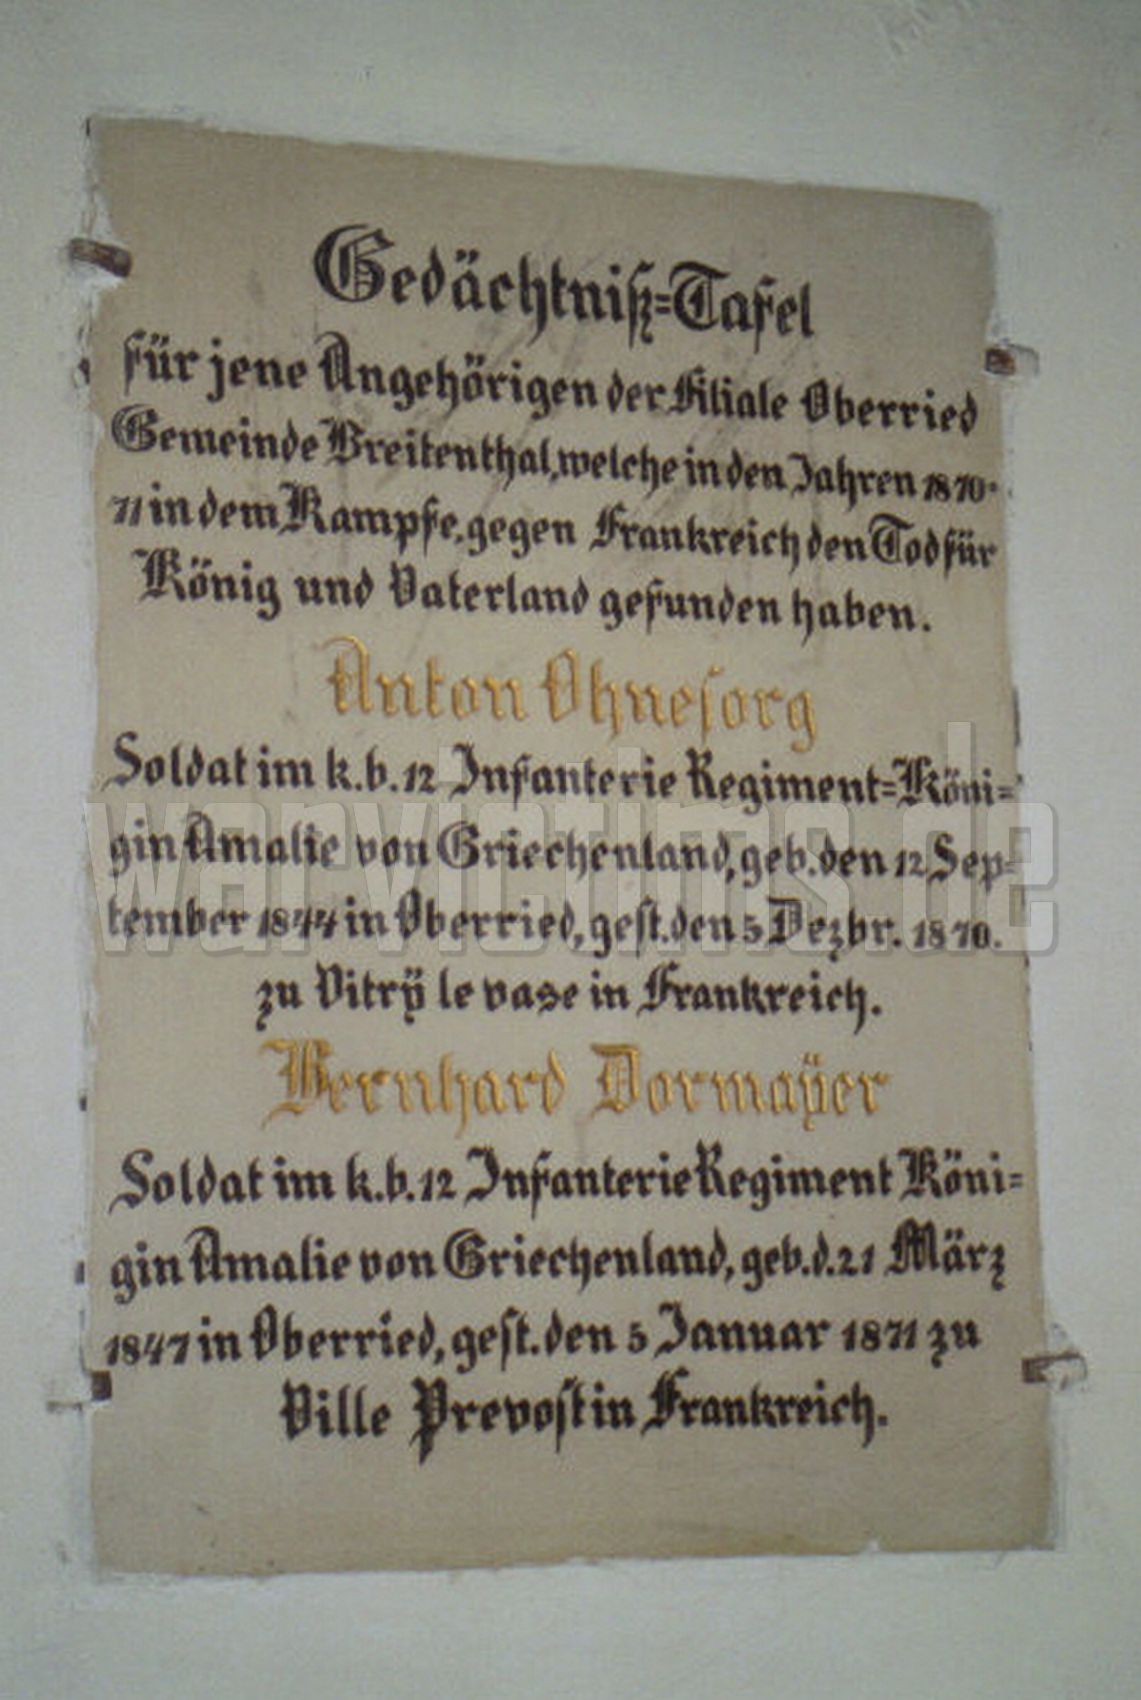 Gedächtniß=Tafel
für jene Angehörigen der Filiale Oberried
Gemeinde Breitenthal, welche in den Jahren 1870-
71 in dem Kampfe, gegen Frankreich den Tod für
König und Vaterland gefunden haben.
Anton Ohnesorg
Soldat im k. b. 12 Infanterie Regiment=Köni=
gin Amalie von Griechenland, geb. den 12 Sep=
tember 1844 in Oberried, gest. den 5 Dezbr. 1870.
zu Vitrÿ le vase in Frankreich.
Bernhard Dormaÿer
Soldat im k. b. 12 Infanterie Regiment Köni=
gin Amalie von Griechenland, geb. d. 21 März
1847 in Oberried, gest. den 5 Januar 1871 zu
Ville Prevost in Frankreich.
warvictims.de